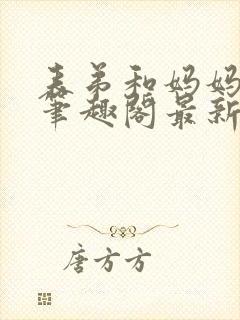 表弟和妈妈
笔趣阁最新
唐方方